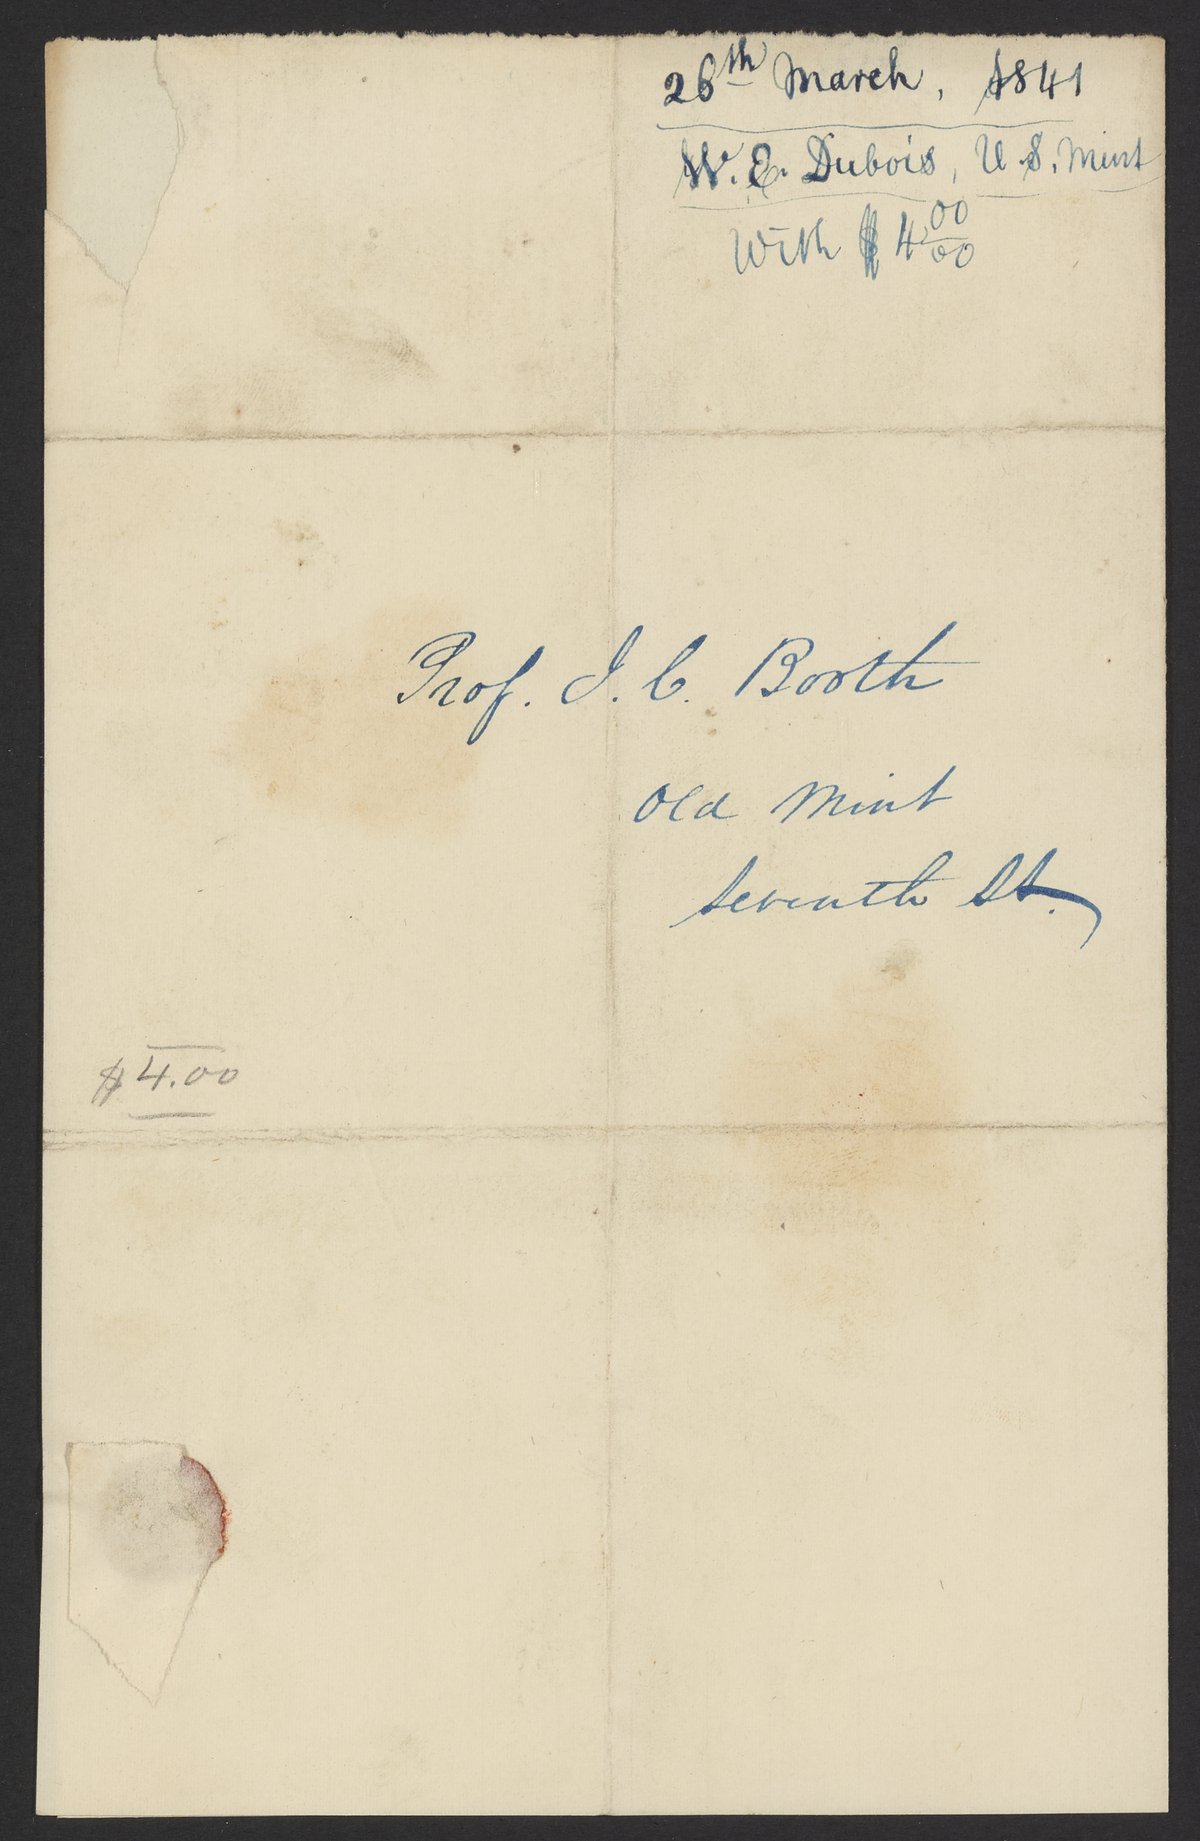 26th March, 1841
W. E. Dubois, U. S. Mint
With $ 4 00/00
Prof. J. C. Booth
Old Mint
Seventh St.
$ 4.00